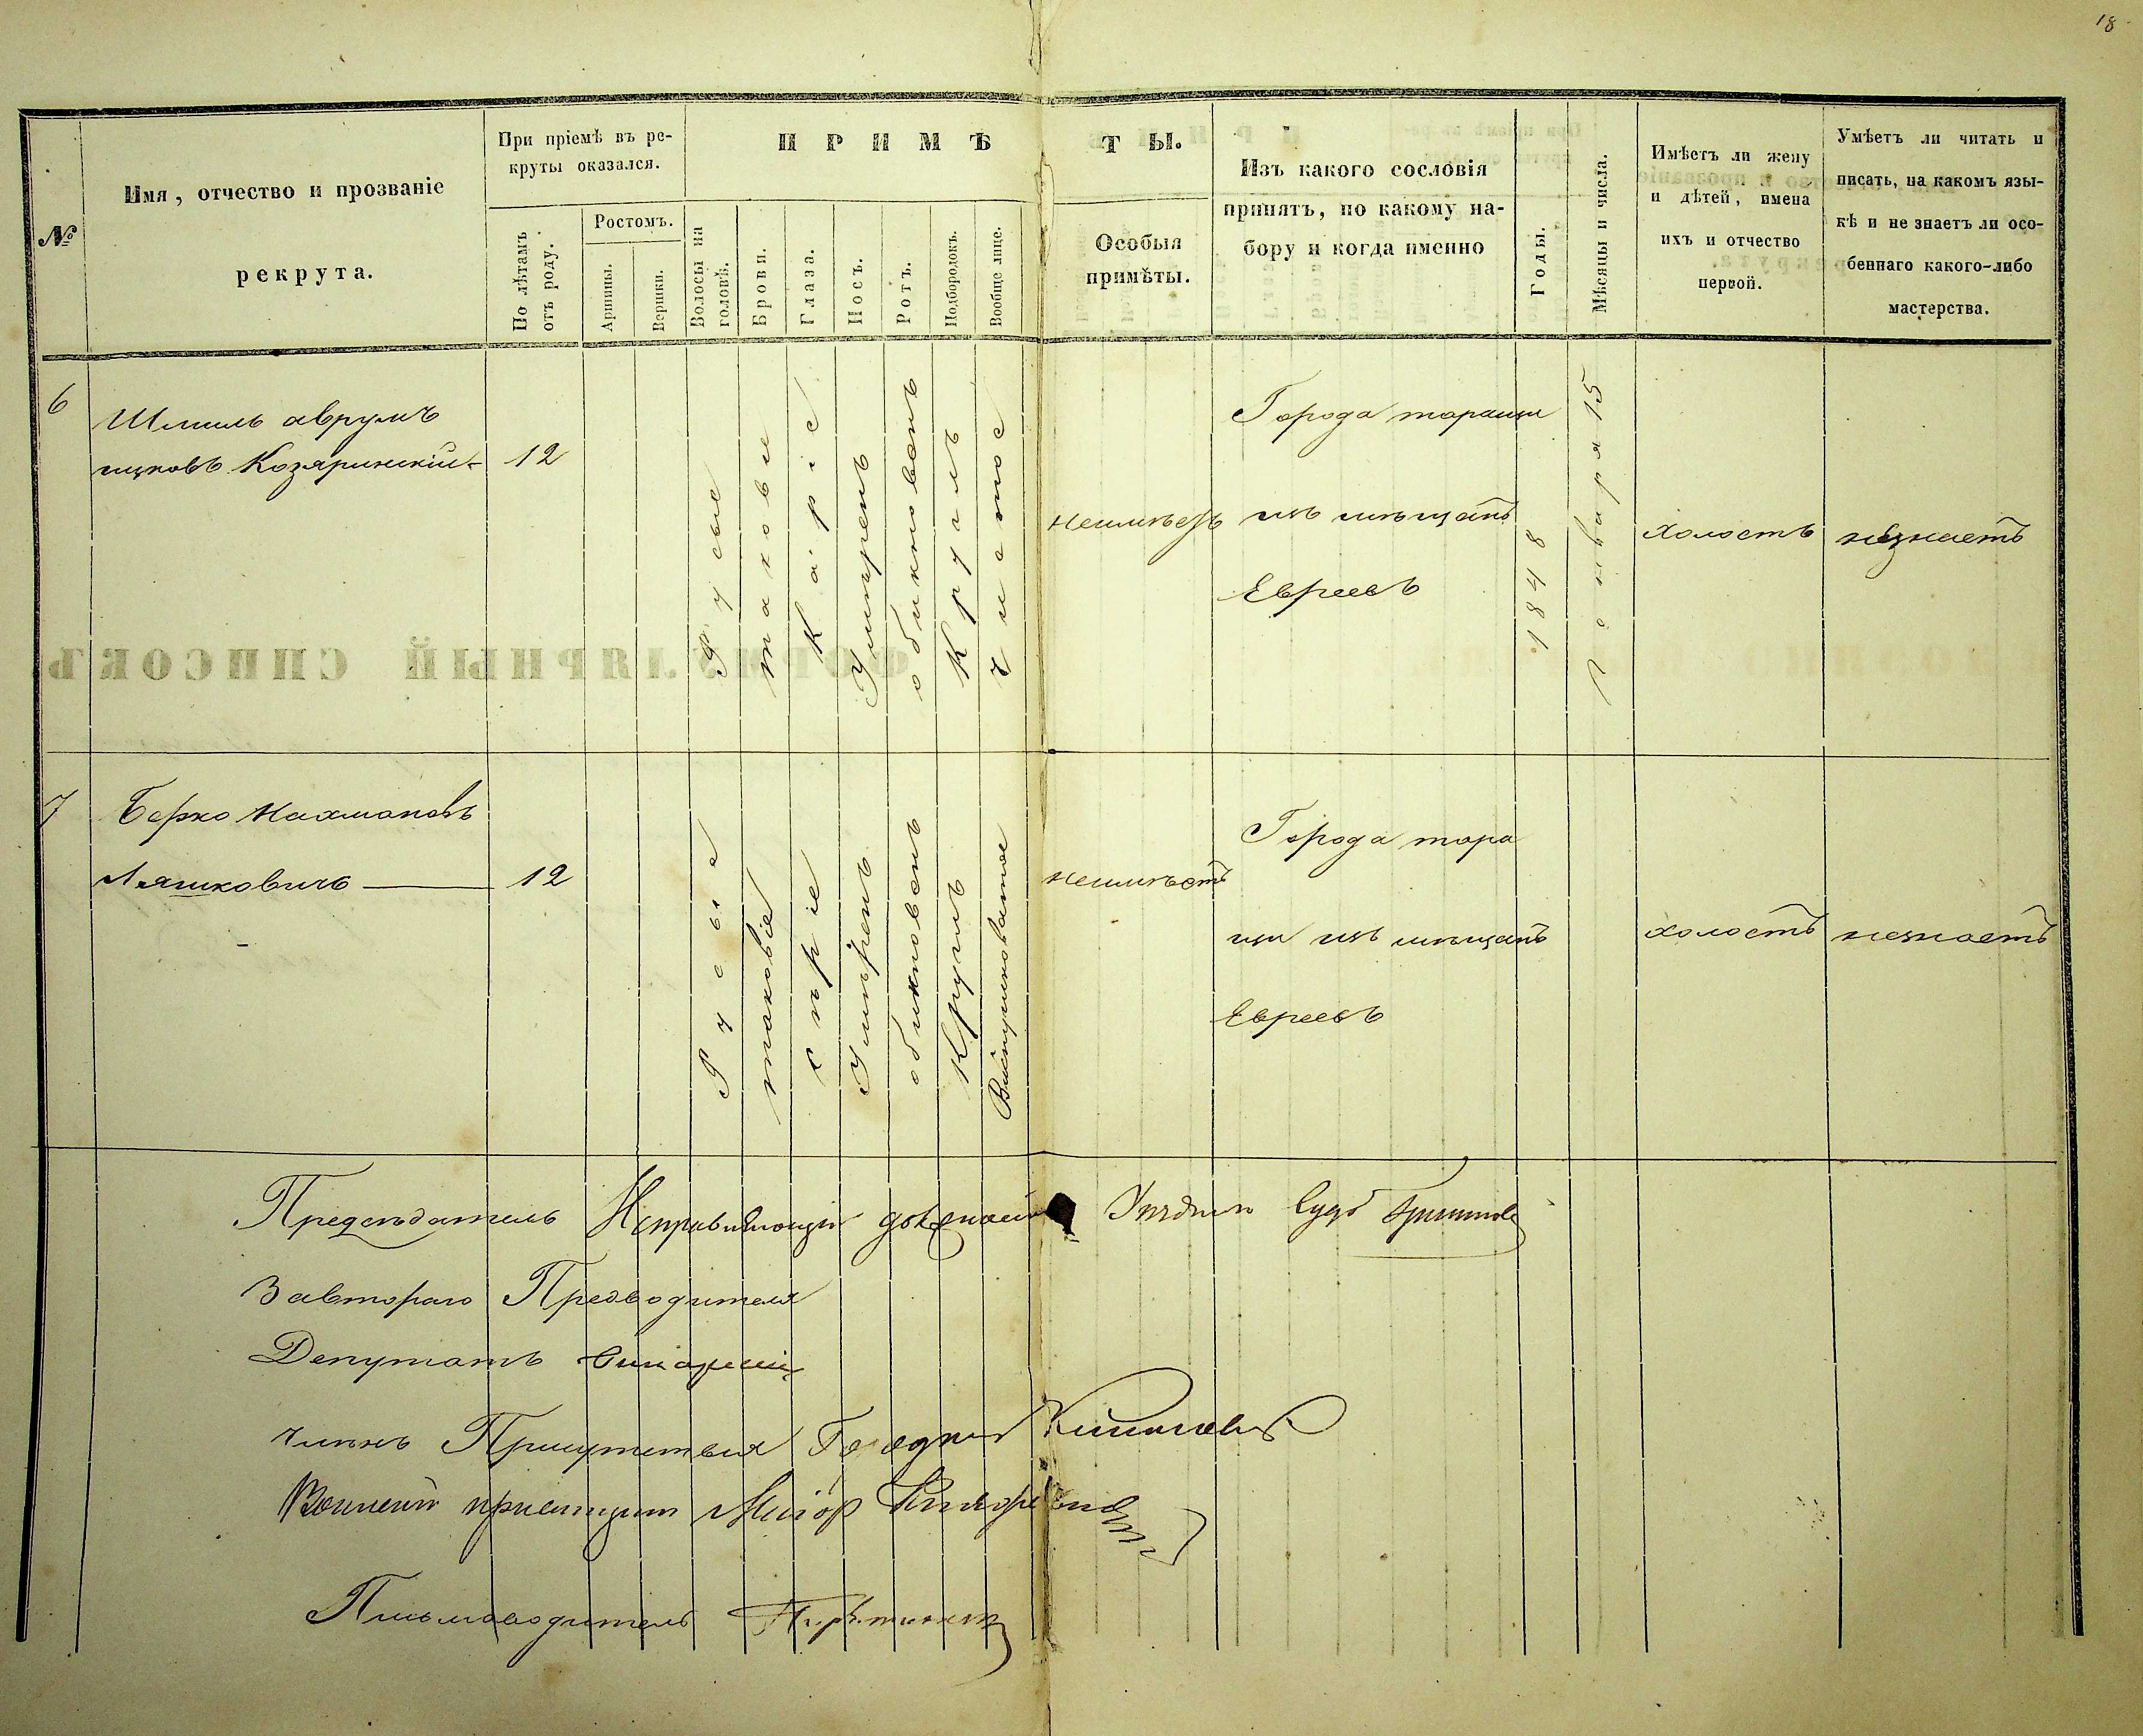 18
№
Имя, отчество и прозваніе
рекрута.
При пріемѣ въ ре-
круты оказался.
По лѣтамъ
отъ роду.
Ростомъ.
Аршины.
Вершки.
ПРИМѢ
ТЫ.
Волосы на
головѣ.
Брови.
Глаза.
Носъ.
Ротъ.
Подбородокъ.
Вообще лице.
Особыя
примѣты.
Изъ какого сословія
принятъ, по какому на-
бору и когда именно
Годы.
Мѣсяцы и числа.
Имѣетъ ли жену
и дѣтей, имена
ихъ и отчество
первой.
Умѣетъ ли читать и
писать, на какомъ язы-
кѣ и не знаетъ ли осо-
беннаго какого-либо
мастерства.
6
Шмиль аврумъ
ицковъ Козяринскій
12
Русые
таковые
Каріе
Умѣренъ
обикновенъ
Круглъ
Чистое
неимѣетъ
Города таращи
изъ мѣщанъ
Евреевъ
1848
Генваря 15
холостъ
незнаетъ
7
Берко Нахмановъ
Ляшковичъ
12
Русые
таковіе
сѣріе
Умѣренъ
обикновенъ
Круглъ
неимѣетъ
Города тара
щи изъ мѣщанъ
Евреевъ
холостъ
незнаетъ
Предсѣдатель
За втораго Предводителя
Депутатъ
Членъ Присутствия
Военный приемщикъ Маіор
Письмоводитель